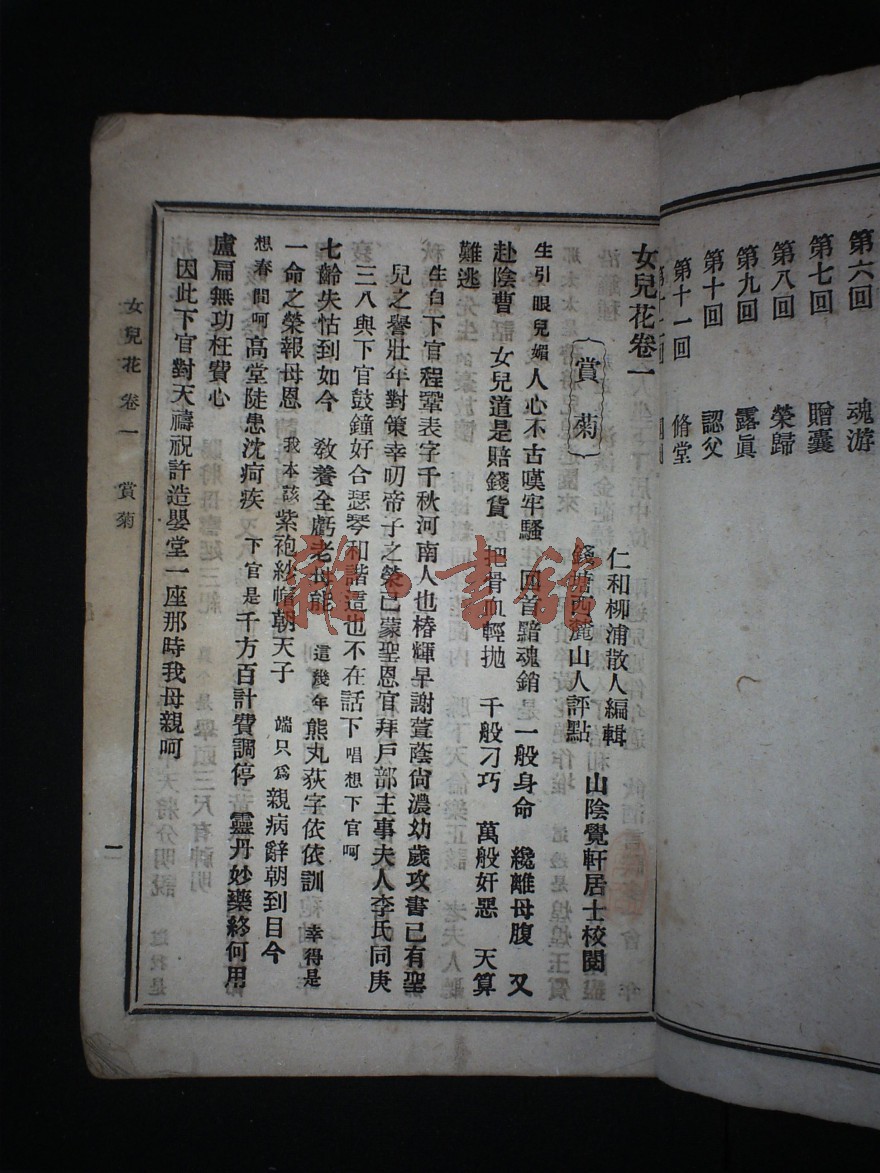 第六回　魂游
第七回　贈囊
第八回　榮歸
第九回　露眞
第十回　認父
第十一回　脩堂
女兒花卷一
仁和柳浦散人編輯
錢塘西麓山人評點
山陰覺軒居士校閱
賞菊
生引 眼兒媚 人心不古嘆牢騷　回首黯魂銷　一般身命　纔離母腹　又
赴陰曹　女兒道是賠錢貨　把骨血輕拋　千般刁巧　萬般奸惡　天算
難逃
生白 下官程鞏表字千秋河南人也椿輝早謝萱蔭尙濃幼歲攻書已有聖
兒之譽壯年對策幸叨帝子之榮已蒙聖恩官拜戶部主事夫人李氏同庚
三八與下官鼓鐘好合瑟琴和諧這也不在話下 唱 想下官呵
七齡失怙到如今　敎養全虧老母能　這幾年熊丸荻字依依訓　幸得是
一命之榮報母恩　我本該紫袍紗帽朝天子　端只爲親病辭朝到目今
想春間呵高堂陡患沈疴疾　下官是千方百計費調停　靈丹妙藥終何用
盧扁無功枉費心
因此下官對天禱祝許造嬰堂一座那時我母親呵
女兒花 卷一　賞菊
一
龍口書館